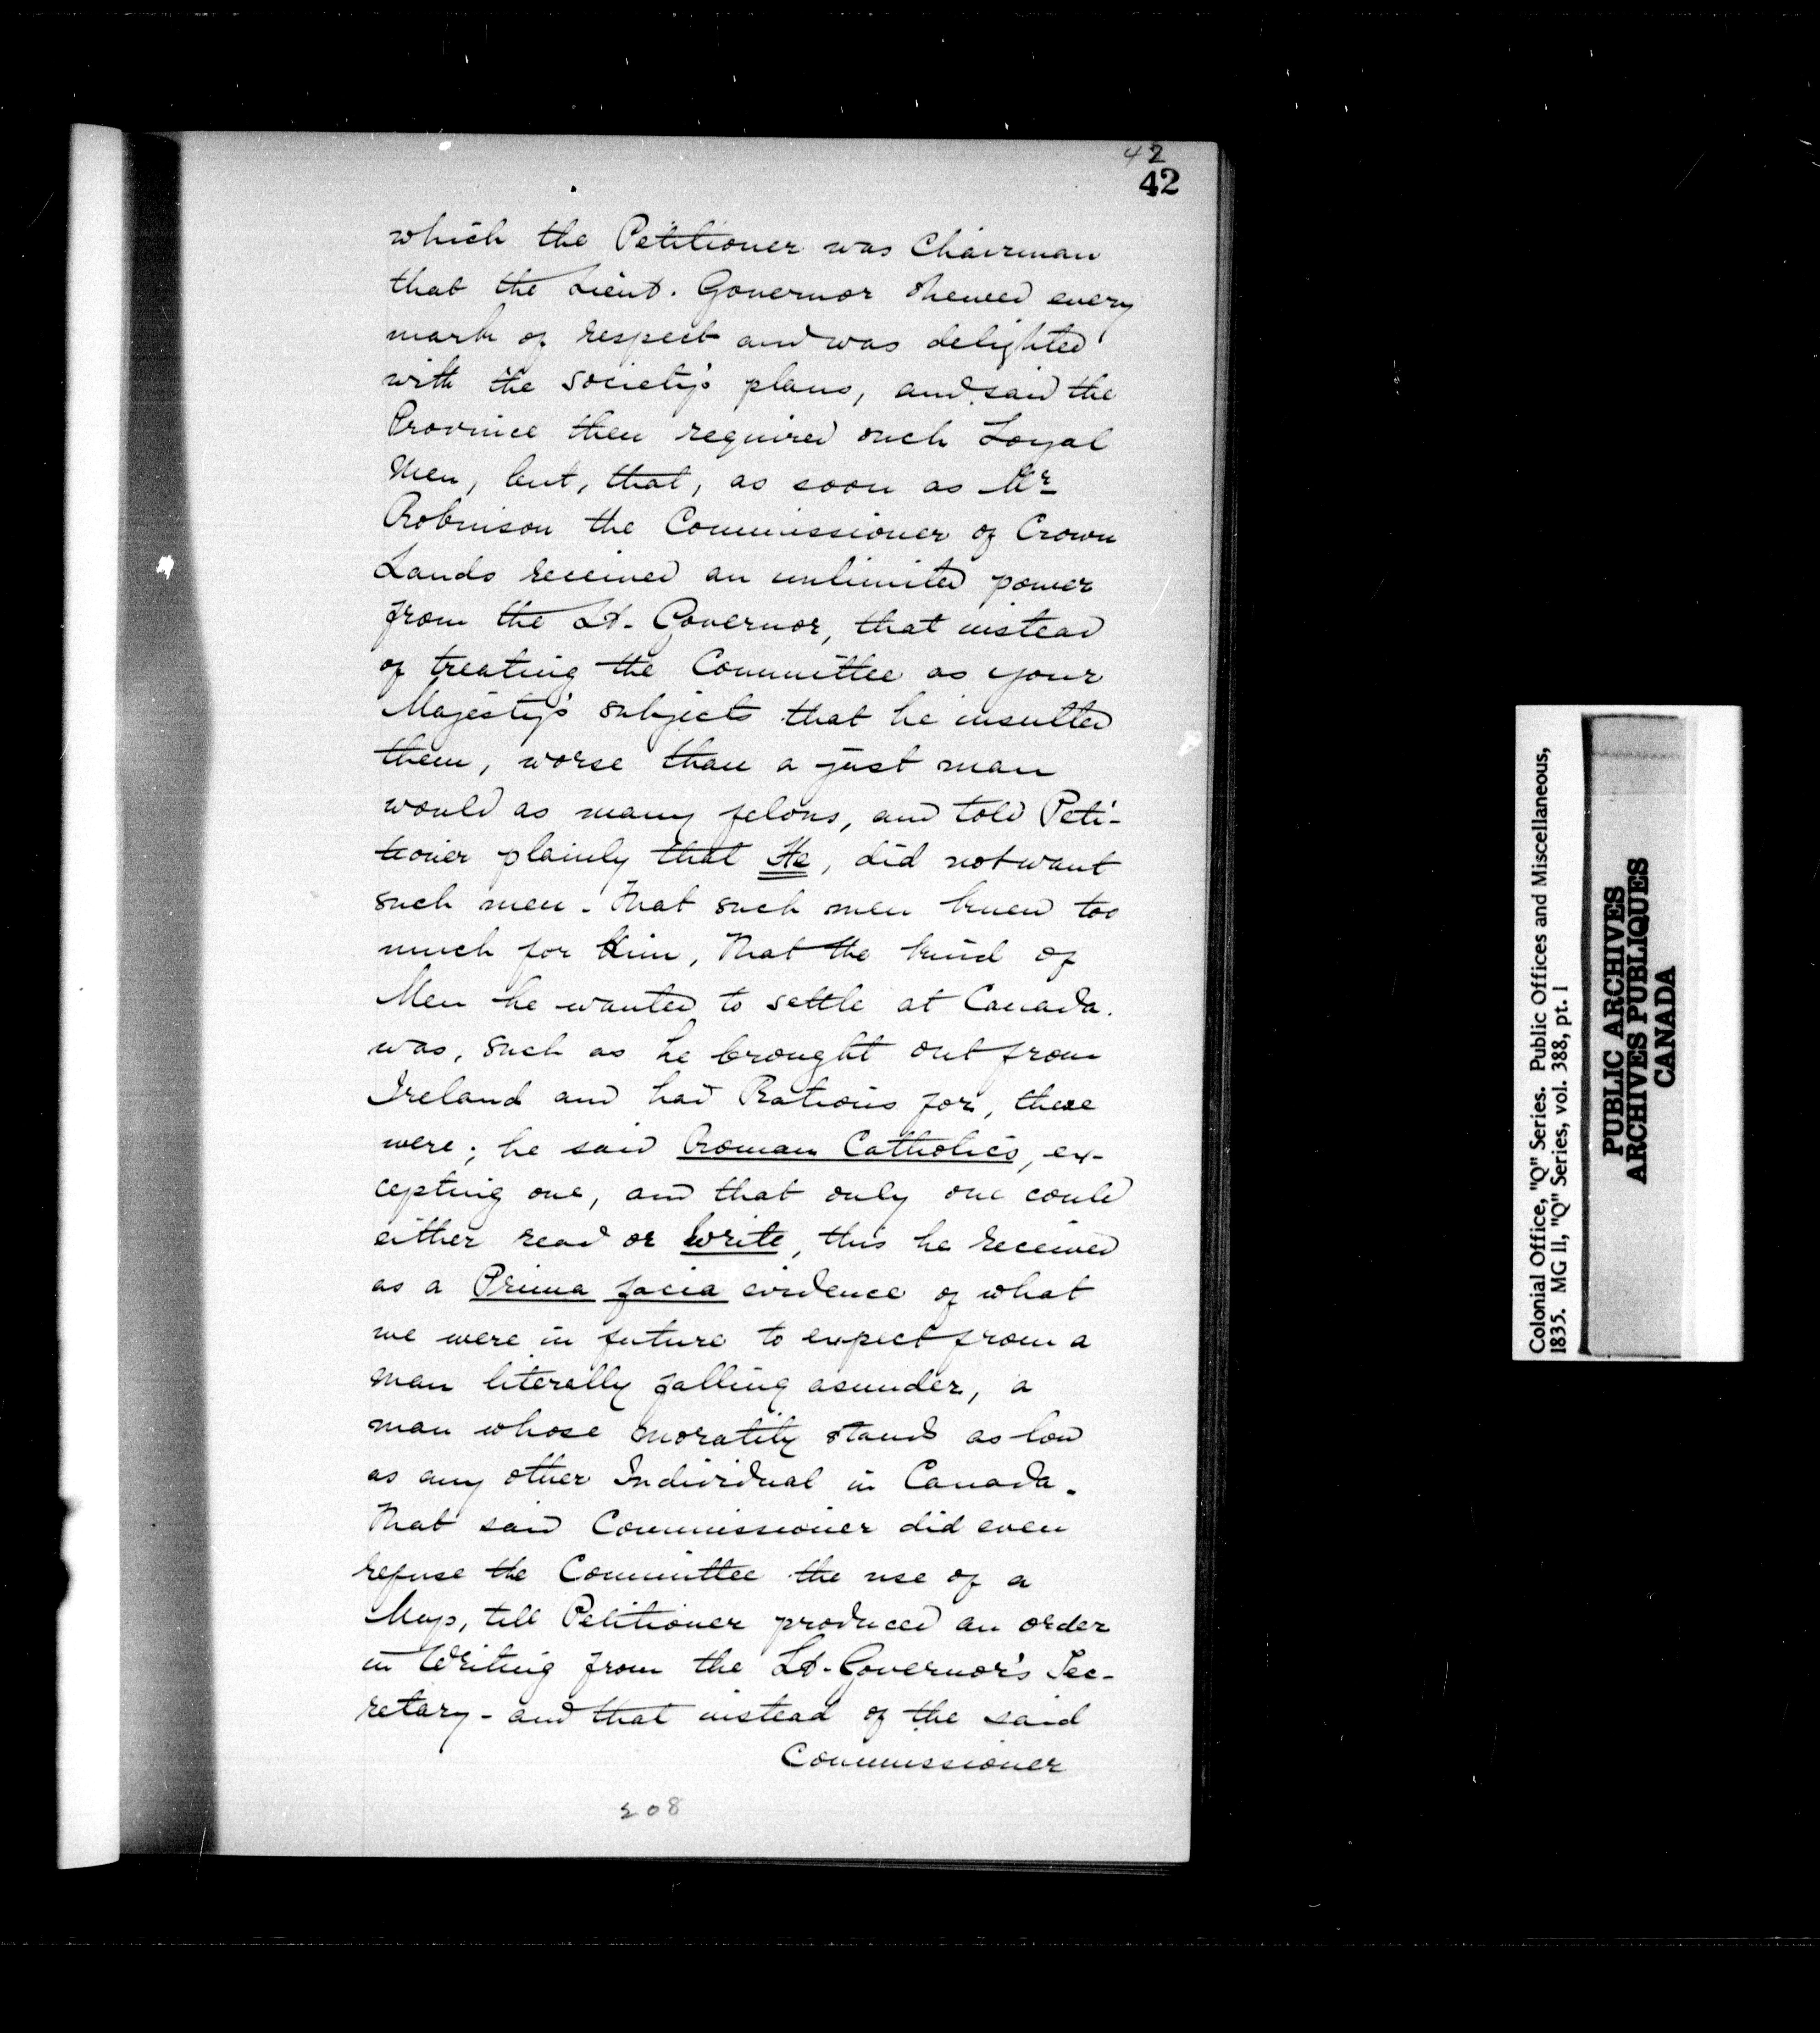 42
42
which the Petitioner was Chairman
that the Lieut. Governor shewed every
mark of respect and was delighted
with the society's plans, and said the
Province then required such Loyal
Men, but, that, as soon as Mr
Robinson the Commissioner of Crown
Lands received an unlimited power
from the Lt. Governor, that instead
of treating the Committee as your
Majesty's subjects that he insulted
them, worse than a just man
would as many felons, and told Peti-
tioner plainly that He, did not want
such men. That such men knew too
much for Him, That the kind of
Men he wanted to settle at Canada.
was, such as he brought out from
Ireland and had Rations for, these
were; he said Roman Catholics, ex-
cepting one, and that only one could
either read or write, this he received
as a Prima facia evidence of what
we were in future to expect from a
man literally falling asunder, a
man whose morality stands as low
as any other Individual in Canada.
That said Commissioner did even
refuse the Committee the use of a
Map, till Petitioner produced an order
in Writing from the Lt-Governor's Sec-
retary - and that instead of the said
Commissioner
208
Colonial Office, "Q" Series. Public Offices and Miscellaneous,
1835. MG 11, "Q" Series, vol. 388, pt. 1
PUBLIC ARCHIVES
ARCHIVES PUBLIQUES
CANADA